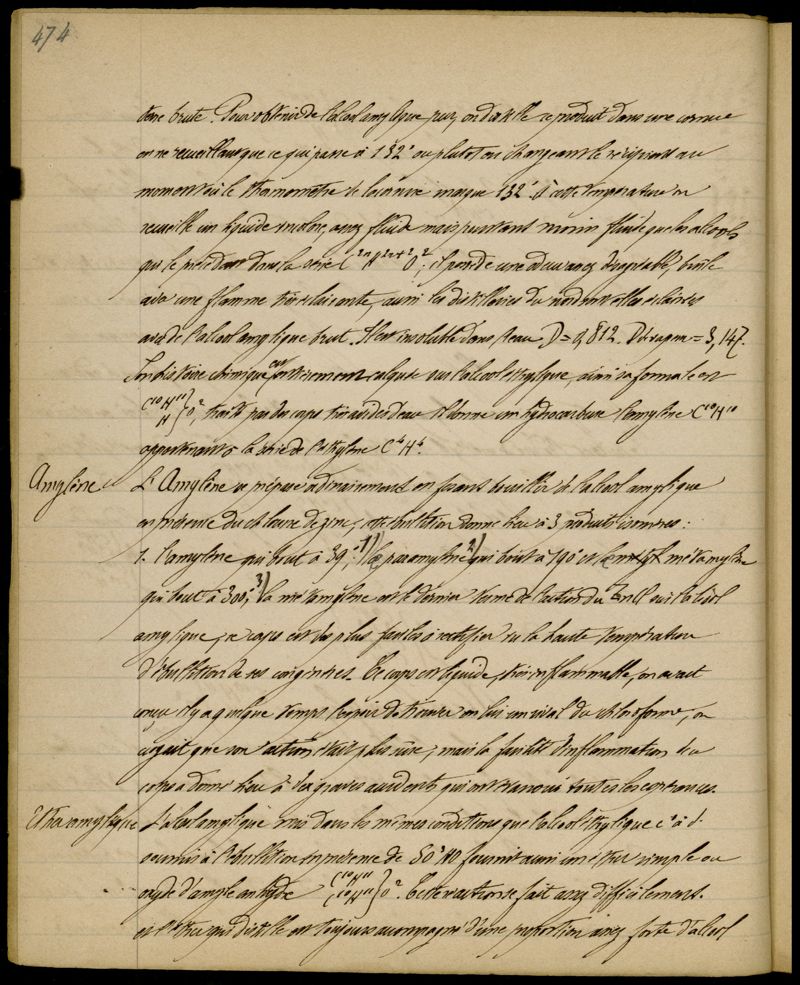 474
brute. Pour obtenir de l'alcool amylique pur, on distille ce produit dans une cornue
en ne recueillant que ce qui passe à 132° ou plutôt en changeant le récipient au
moment où le thermomètre de la cornue marque 132°. A cette température on
recueille un liquide incolore, assez fluide mais pourtant moins fluide que les alcools
qui le précèdent dans la série C²ⁿH²ⁿ⁺²O²; il possède une odeur assez désagréable, brûle
avec une flamme très éclairante, aussi les distilleries du nord sont elles éclairées
avec de l'alcool amylique brut. Il est insoluble dans l'eau D = 0,812. D de vapeur = 3,147.
Son histoire chimique est entièrement calquée sur l'alcool éthylique, ainsi sa formule est
C¹⁰H¹¹ H } O², traité par des corps très avides d'eau il donne un hydrocarbure l'amylène C¹⁰H¹⁰
appartenant à la série de l'éthylène C⁴H⁴.
Amylène L'Amylène se prépare ordinairement en faisant bouillir de l'alcool amylique
en présence du chlorure de zinc; cette ébullition donne lieu à 3 produits isomères:
1. l'amylène qui bout à 39°; 1) le paramylène 2) qui bout à 190° et le métamylène
qui bout à 300°, 3) la métamylène est le dernier terme de l'action du ZnCl sur l'alcool
amylique; ce corps est des plus faciles à rectifier vu la haute température
d'ébullition de ses congénères. Ce corps est liquide, très inflammable, on avait
conçu il y a quelque temps l'espoir de trouver en lui un rival du chloroforme, on
croyait que son action était plus sûre; mais la facilité d'inflammation du
corps a donné lieu à des graves accidents qui ont évanoui toutes les espérances.
Ether amylique L'alcool amylique mis dans les mêmes conditions que l'alcool éthylique c' à d.
soumis à l'ébullition en présence de SO³HO fournit aussi un éther simple ou
oxyde d'amyle anhydre C¹⁰H¹¹ C¹⁰H¹¹ } O². Cette réaction se fait assez difficilement.
et l'éther qui distille est toujours accompagné d'une proportion assez forte d'alcool